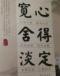 寬心
舍得
淡定